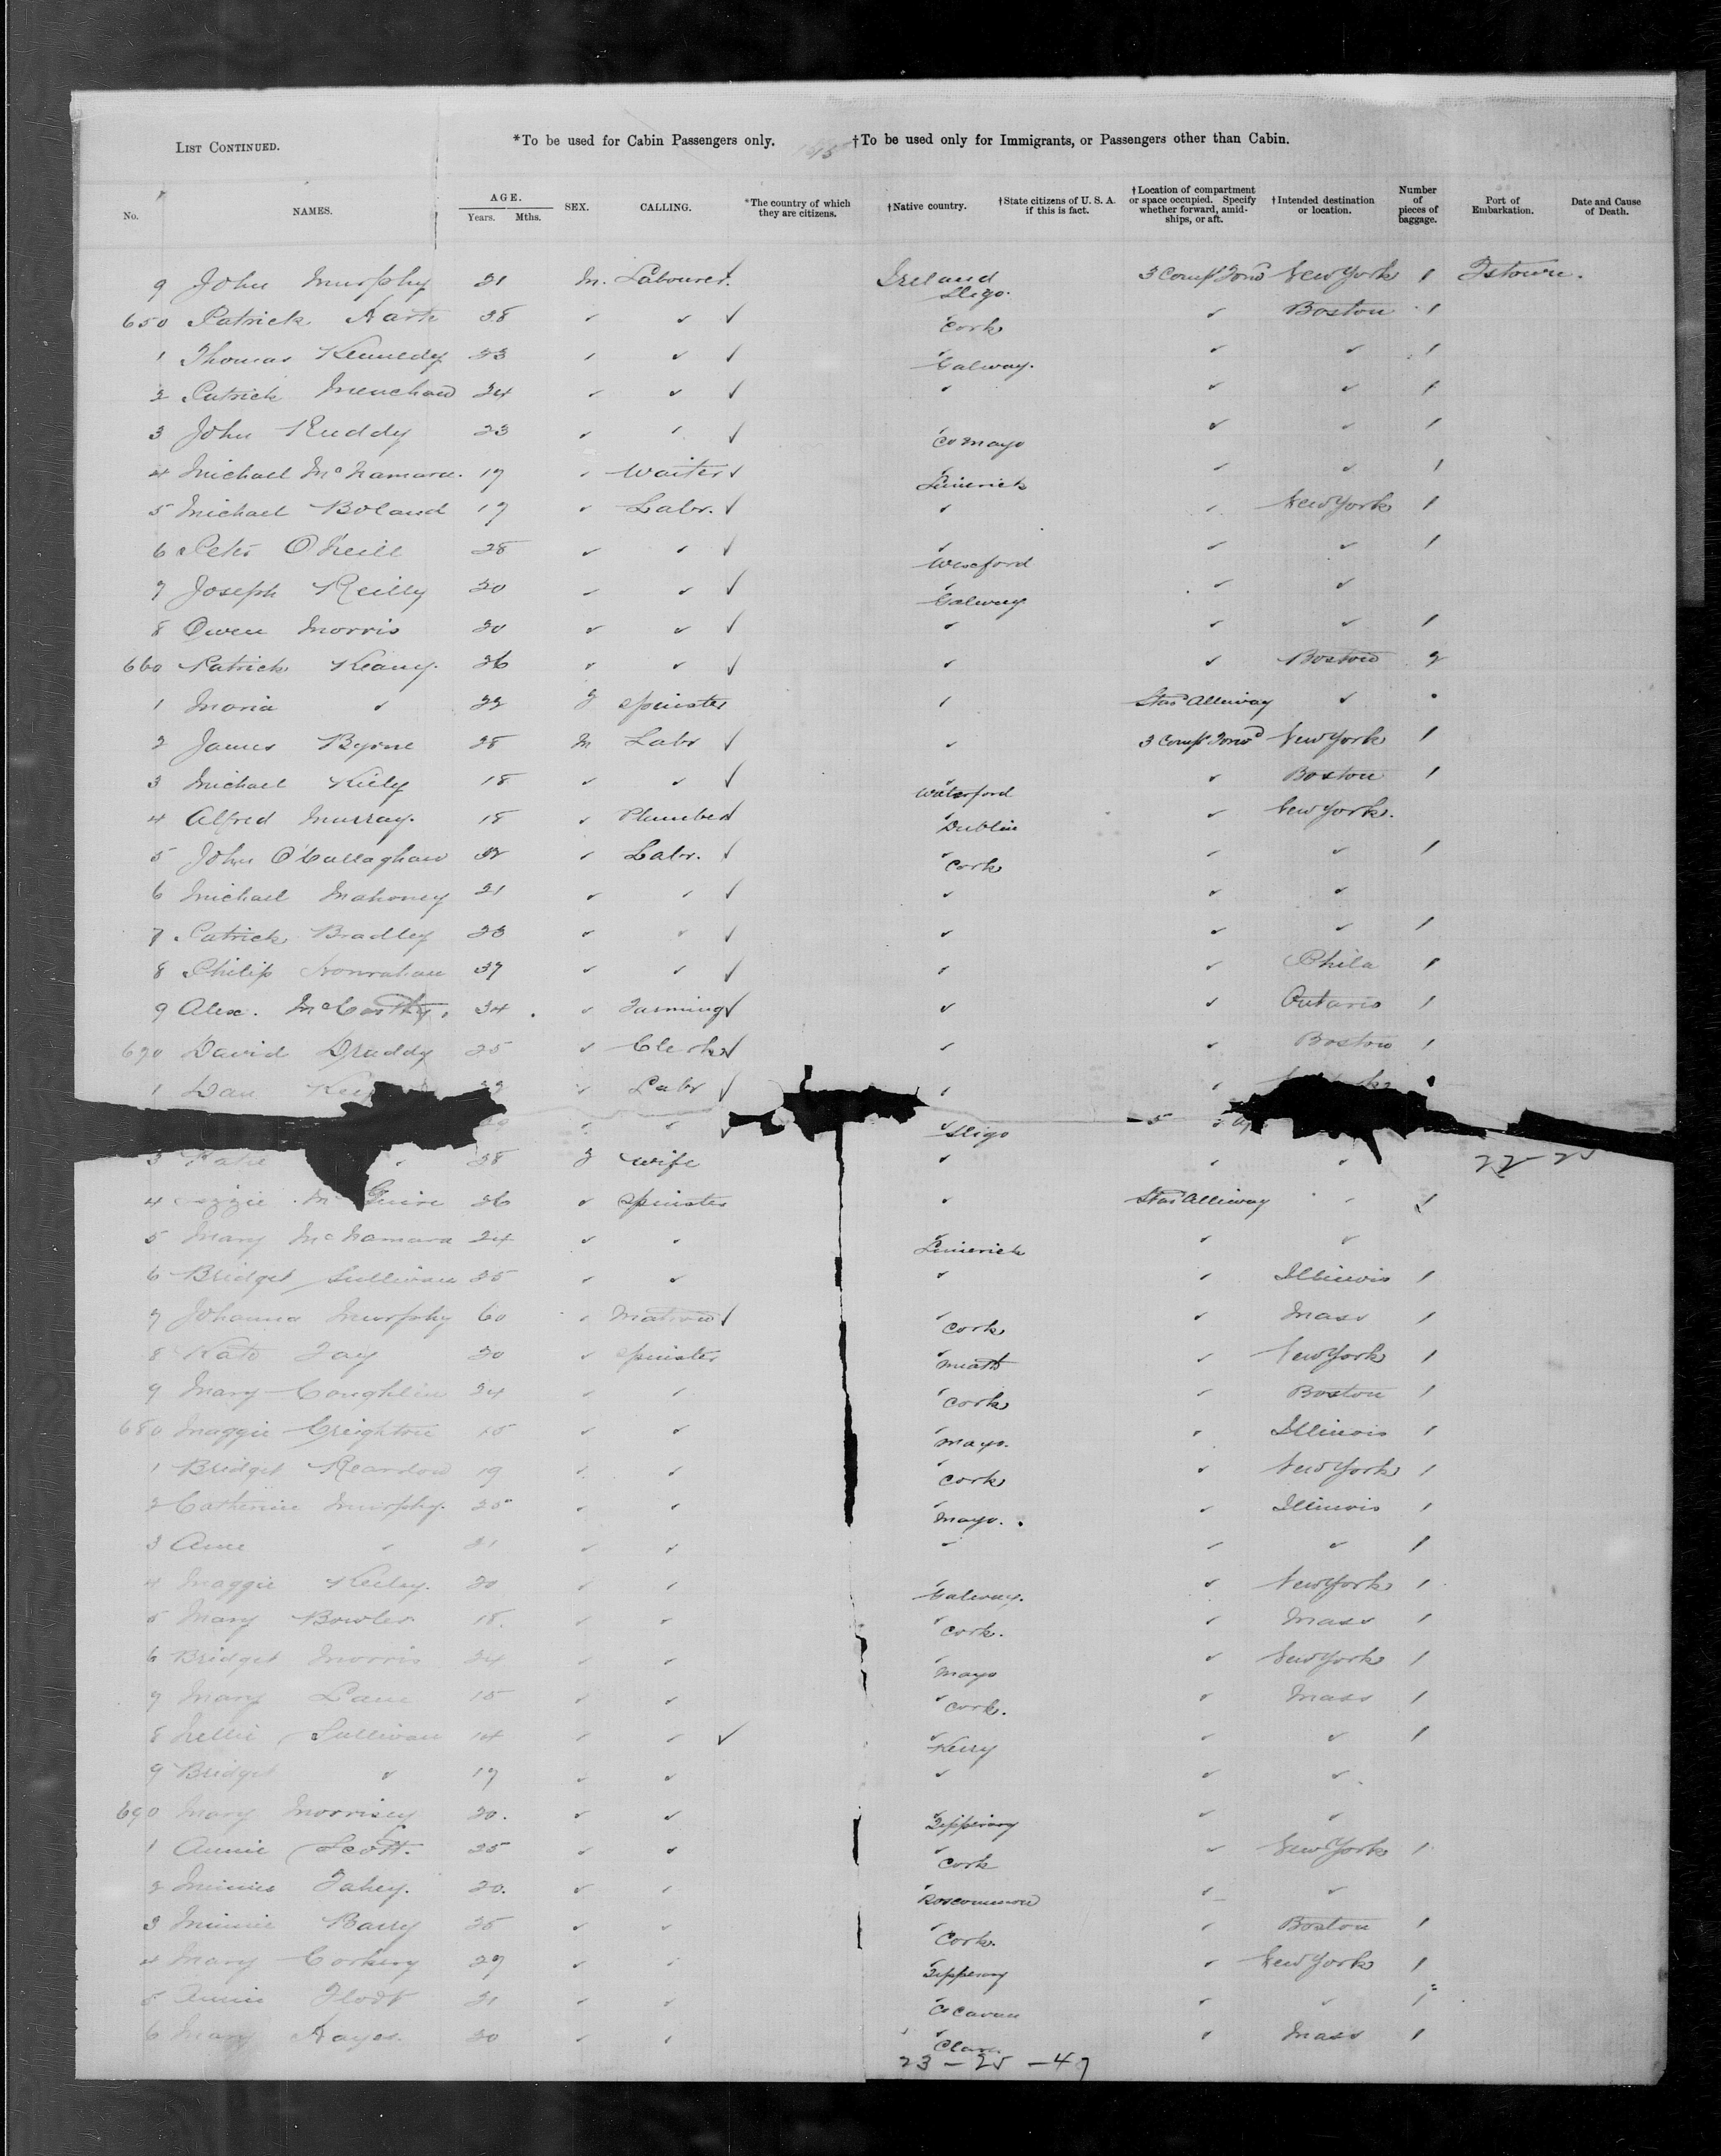 LIST CONTINUED. *To be used for Cabin Passengers only. †To be used only for Immigrants, or Passengers other than Cabin.
No. NAMES. AGE. Years. Mths. SEX. CALLING. *The country of which they are citizens. †Native country. †State citizens of U. S. A. if this is fact. †Location of compartment or space occupied. Specify whether forward, amidships, or aft. †Intended destination or location. Number of pieces of baggage. Port of Embarkation. Date and Cause of Death.
9 John Murphy 21 M. Labourer. ✓ Ireland Sligo. 3 Compt Forwd New York 1 Qstown.
650 Patrick Harte 28 ✓ ✓ ✓ ✓ Cork ✓ Boston 1
1 Thomas Kennedy 23 ✓ ✓ ✓ ✓ Galway. ✓ ✓ 1
2 Patrick 24 ✓ ✓ ✓ ✓ ✓ ✓ 1
3 John Ruddy 23 ✓ ✓ ✓ Co Mayo ✓ ✓ 1
4 Michael McNamara. 19 ✓ Waiter ✓ ✓ Limerick ✓ ✓ 1
5 Michael Boland 19 ✓ Labr. ✓ ✓ ✓ New York 1
6 Peter O'Neill 28 ✓ ✓ ✓ ✓ Wexford ✓ ✓ 1
7 Joseph Reilly 20 ✓ ✓ ✓ ✓ Galway ✓ ✓
8 Owen Morris 20 ✓ ✓ ✓ ✓ ✓ ✓ 1
660 Patrick Keany. 26 ✓ ✓ ✓ ✓ ✓ Boston 2
1 Maria ✓ 22 F Spinster ✓ Stard Alleiway ✓
2 James Byrne 28 M Labr ✓ ✓ 3 Compt Forwd New York 1
3 Michael Kiely 18 ✓ ✓ ✓ ✓ Waterford ✓ Boston 1
4 Alfred Murray. 18 ✓ Plumber ✓ ✓ Dublin ✓ New York.
5 John O'Callaghan 22 ✓ Labr. ✓ ✓ Cork ✓ ✓ 1
6 Michael Mahoney 21 ✓ ✓ ✓ ✓ ✓ ✓
7 Patrick Bradley 23 ✓ ✓ ✓ ✓ ✓ ✓ 1
8 Philip 37 ✓ ✓ ✓ ✓ ✓ Phila 1
9 Alex. McCarthy. 34 ✓ Farming ✓ ✓ ✓ Ontario 1
670 David Druddy 25 ✓ Clerk ✓ ✓ ✓ Boston 1
1 Dan 22 ✓ Labr ✓ ✓ ✓
✓ ✓ ✓ ✓ Sligo
3 Katie ✓ 28 F Wife ✓ ✓ ✓ 22 - 25
4 McGuire 26 ✓ Spinster ✓ Stard Alleiway ✓ 1
5 Mary McNamara 24 ✓ ✓ ✓ Limerick ✓ ✓
6 Bridget Sullivan 25 ✓ ✓ ✓ ✓ Illinois 1
7 Johanna Murphy 60 ✓ Matron ✓ ✓ Cork ✓ Mass 1
8 Kate Fay 20 ✓ Spinster ✓ Meath ✓ New York 1
9 Mary Coughlin 24 ✓ ✓ ✓ Cork ✓ Boston 1
680 Maggie Creighton 18 ✓ ✓ ✓ Mayo. ✓ Illinois 1
1 Bridget Reardon 19 ✓ ✓ ✓ Cork ✓ New York 1
2 Catherine Murphy. 25 ✓ ✓ ✓ Mayo. ✓ Illinois 1
3 Anne ✓ 21 ✓ ✓ ✓ ✓ ✓ 1
4 Maggie Keeley. 20 ✓ ✓ ✓ Galway. ✓ New York 1
5 Mary Bowler 18. ✓ ✓ ✓ Cork. ✓ Mass 1
6 Bridget Morris 24 ✓ ✓ ✓ Mayo ✓ New York 1
7 Mary Lane 18 ✓ ✓ ✓ Cork. ✓ Mass 1
8 Nellie Sullivan 14 ✓ ✓ ✓ ✓ Kerry ✓ ✓ 1
9 Bridget ✓ 19 ✓ ✓ ✓ ✓ ✓
690 Mary Morrisey 20. ✓ ✓ ✓ Tipperary ✓ ✓
1 Annie Scott. 25 ✓ ✓ ✓ Cork ✓ New York 1
2 Minnie Fahey. 20. ✓ ✓ ✓ Roscommon ✓ ✓
3 Minnie Barry 25 ✓ ✓ ✓ Cork. ✓ Boston 1
4 Mary Corkery 29 ✓ ✓ ✓ Tipperary ✓ New York 1
5 Annie 21 ✓ ✓ ✓ Co Cavan ✓ ✓ 1
6 Mary Hayes 20 ✓ ✓ ✓ Clare. ✓ Mass 1
23 - 25 - 47